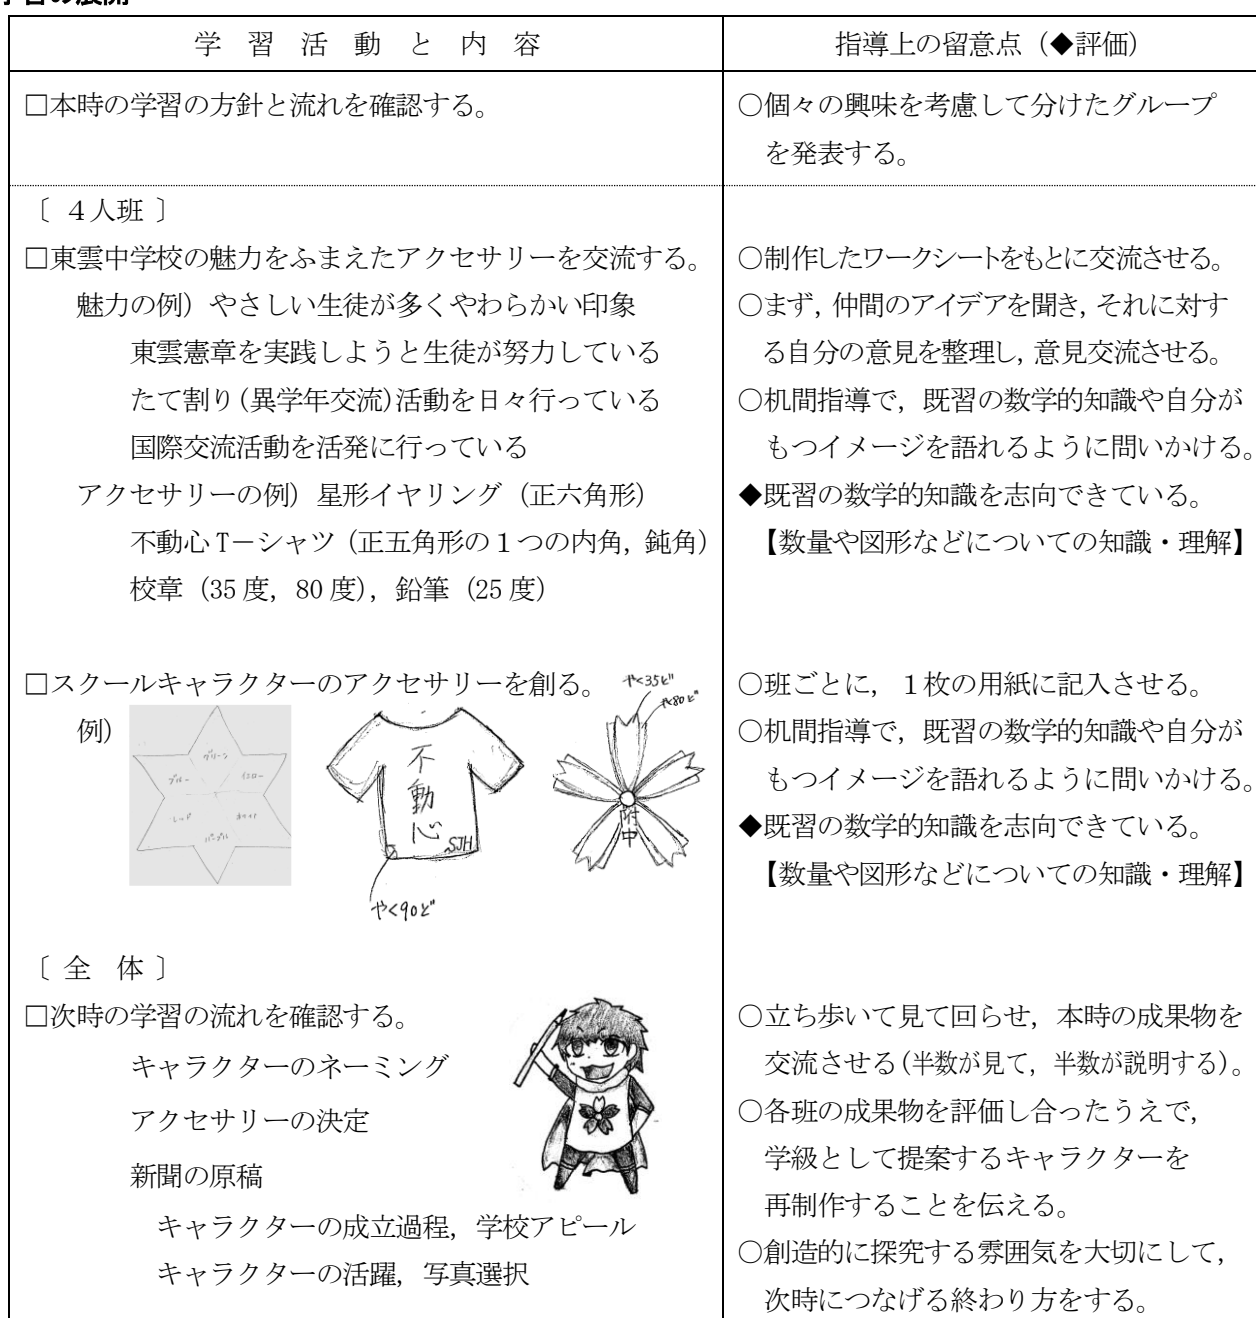 学習の展開
学　習　活　動　と　内　容
指導上の留意点（◆評価）
□本時の学習の方針と流れを確認する。
○個々の興味を考慮して分けたグループ
を発表する。
〔 ４人班 〕
□東雲中学校の魅力をふまえたアクセサリーを交流する。
魅力の例）やさしい生徒が多くやわらかい印象
東雲憲章を実践しようと生徒が努力している
たて割り(異学年交流)活動を日々行っている
国際交流活動を活発に行っている
アクセサリーの例）星形イヤリング（正六角形）
不動心Ｔ－シャツ（正五角形の１つの内角，鈍角）
校章（35度，80度），鉛筆（25度）
○制作したワークシートをもとに交流させる。
○まず，仲間のアイデアを聞き，それに対す
る自分の意見を整理し，意見交流させる。
○机間指導で，既習の数学的知識や自分が
もつイメージを語れるように問いかける。
◆既習の数学的知識を志向できている。
【数量や図形などについての知識・理解】
□スクールキャラクターのアクセサリーを創る。
例）
グリーン
ブルー
イエロー
レッド
パープル
不動心
SJH
やく90ど
やく35ど
やく80ど
附中
○班ごとに，１枚の用紙に記入させる。
○机間指導で，既習の数学的知識や自分が
もつイメージを語れるように問いかける。
◆既習の数学的知識を志向できている。
【数量や図形などについての知識・理解】
〔 全　体 〕
□次時の学習の流れを確認する。
キャラクターのネーミング
アクセサリーの決定
新聞の原稿
キャラクターの成立過程，学校アピール
キャラクターの活躍，写真選択
○立ち歩いて見て回らせ，本時の成果物を
交流させる(半数が見て，半数が説明する)。
○各班の成果物を評価し合ったうえで，
学級として提案するキャラクターを
再制作することを伝える。
○創造的に探究する雰囲気を大切にして，
次時につなげる終わり方をする。